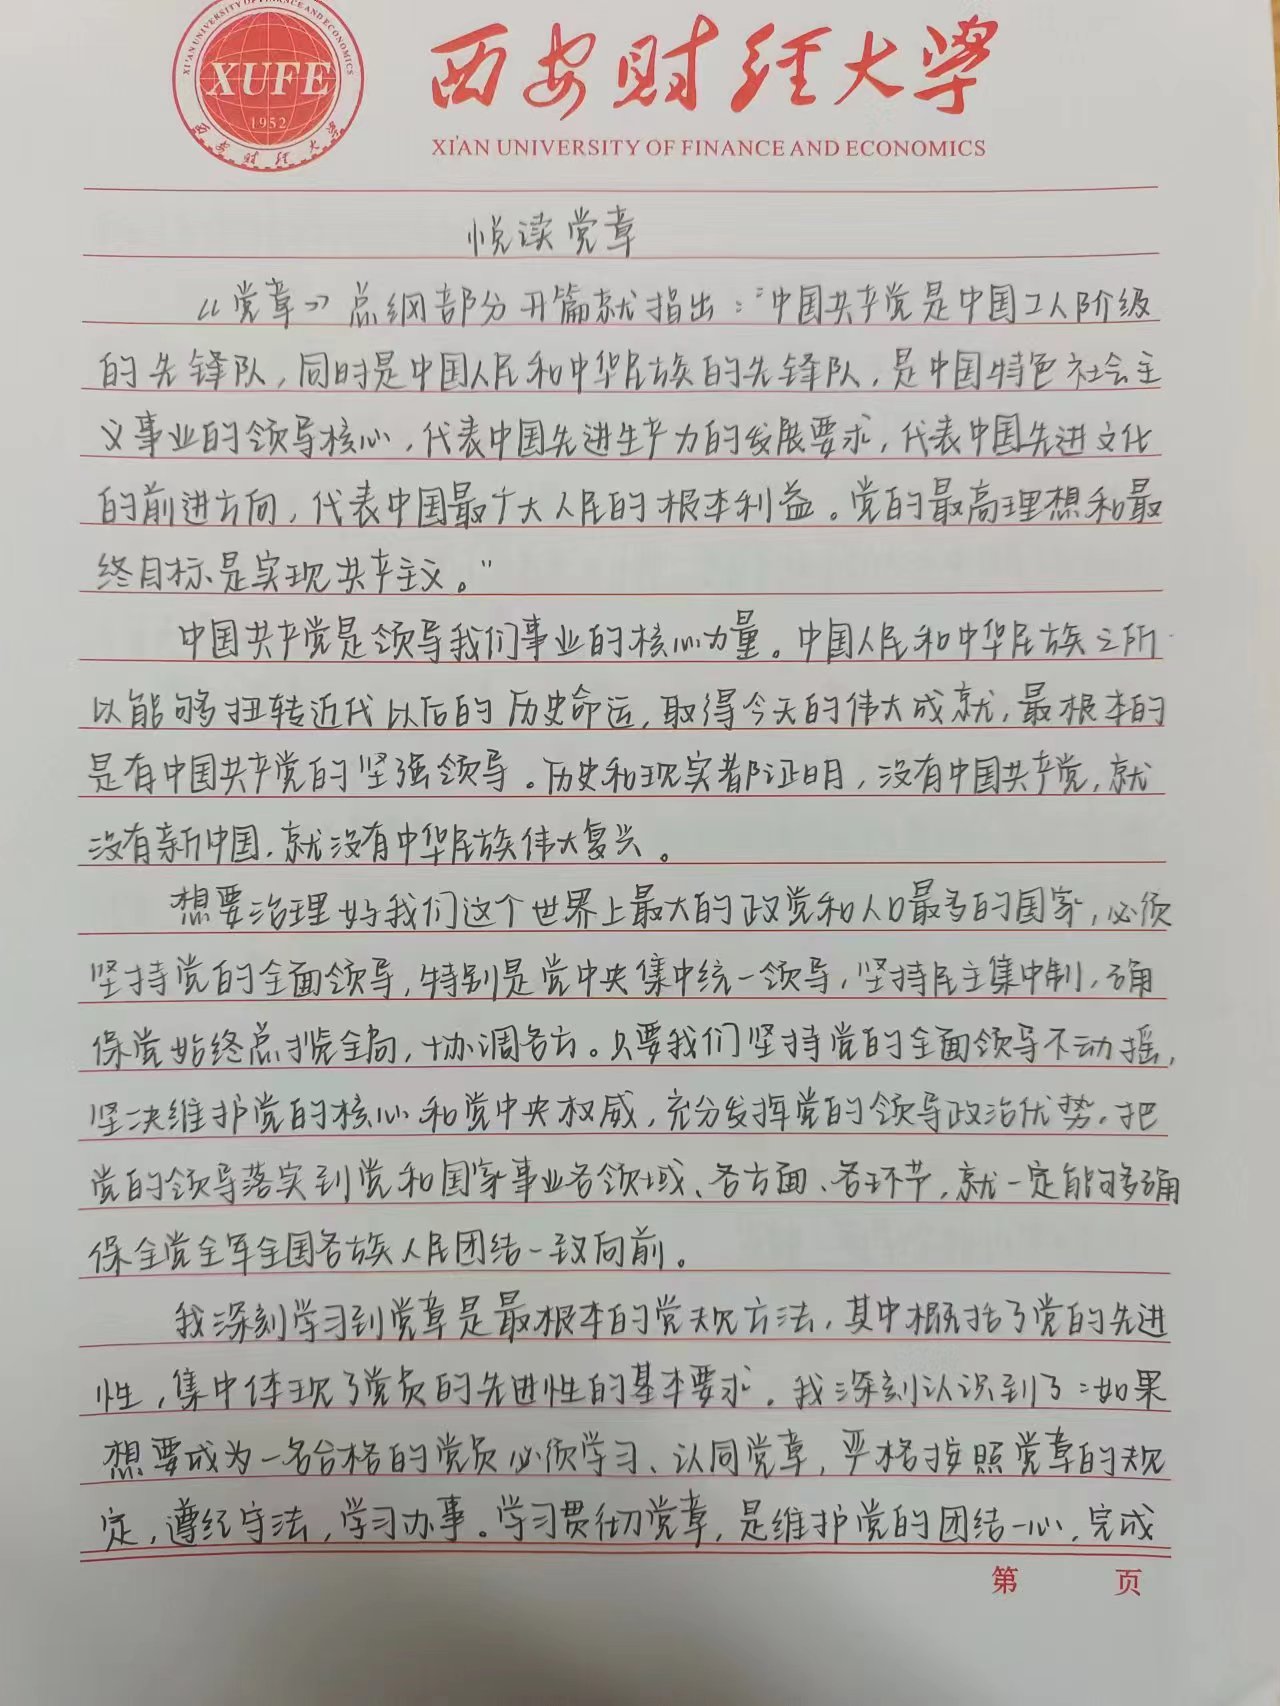 XI'AN UNIVERSITY OF FINANCE AND ECONOMICS
XUFE
1952
西安财经大学
西安财经大学
XI'AN UNIVERSITY OF FINANCE AND ECONOMICS
悦读党章
《党章》总纲部分开篇就指出：“中国共产党是中国工人阶级
的先锋队，同时是中国人民和中华民族的先锋队，是中国特色社会主
义事业的领导核心，代表中国先进生产力的发展要求，代表中国先进文化
的前进方向，代表中国最广大人民的根本利益。党的最高理想和最
终目标是实现共产主义。”
中国共产党是领导我们事业的核心力量。中国人民和中华民族之所
以能够扭转近代以后的历史命运，取得今天的伟大成就，最根本的
是有中国共产党的坚强领导。历史和现实都证明，没有中国共产党，就
没有新中国，就没有中华民族伟大复兴。
想要治理好我们这个世界上最大的政党和人口最多的国家，必须
坚持党的全面领导，特别是党中央集中统一领导，坚持民主集中制，确
保党始终总揽全局，协调各方。只要我们坚持党的全面领导不动摇，
坚决维护党的核心和党中央权威，充分发挥党的领导政治优势，把
党的领导落实到党和国家事业各领域、各方面、各环节，就一定能够确
保全党全军全国各族人民团结一致向前。
我深刻学习到党章是最根本的党规方法，其中概括了党的先进
性，集中体现了党员的先进性的基本要求。我深刻认识到了：如果
想要成为一名合格的党员必须学习、认同党章，严格按照党章的规
定，遵纪守法，学习办事。学习贯彻党章，是维护党的团结一心，完成
第 页